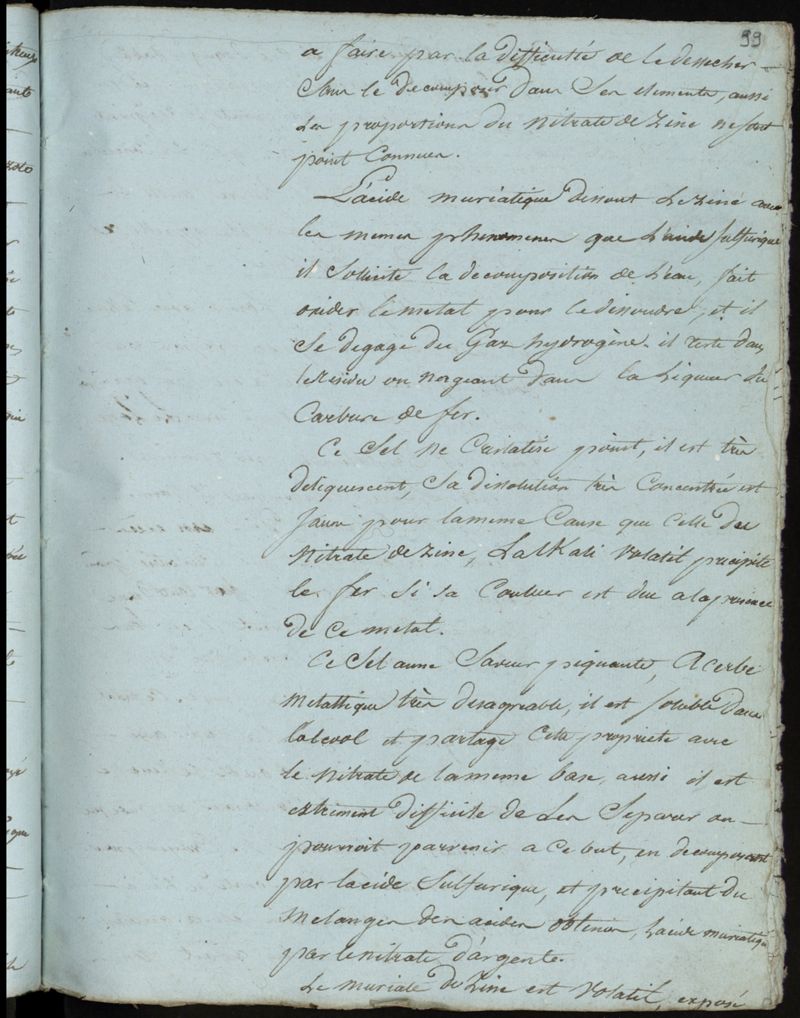 99
a faire par la difficulté de le dessecher
sans le decomposer dans ses elements, aussi
les proportions du nitrate de zinc ne sont
point connues.
L'acide muriatique dissout le zinc avec
les memes phenomenes que l'acide sulfurique
il sollicite la decomposition de l'eau, fait
oxider le metal pour le dissoudre, et il
se degage du Gaz hydrogène. il reste dans
le residu ou nageant dans la liqueur du
Carbure de fer.
Ce Sel ne Cristalise point, il est très
deliquescent, sa dissolution très Concentrée est
jaune pour la meme Cause que celle du
nitrate de zinc, L'alkali volatil precipite
le fer si sa Couleur est due a la presence
de ce metal.
Ce Sel a une Saveur piquante, Acerbe
metallique très desagreable, il est soluble dans
l'alcool et partage cette propriete avec
le nitrate de la meme base, aussi il est
extrement difficile de les Separer on
pourroit parvenir a ce but, en decomposant
par l'acide Sulfurique, et precipitant du
melange des acides obtenus, l'acide muriatique
par le nitrate d'argente.
Le muriate de Zinc est volatil, exposé